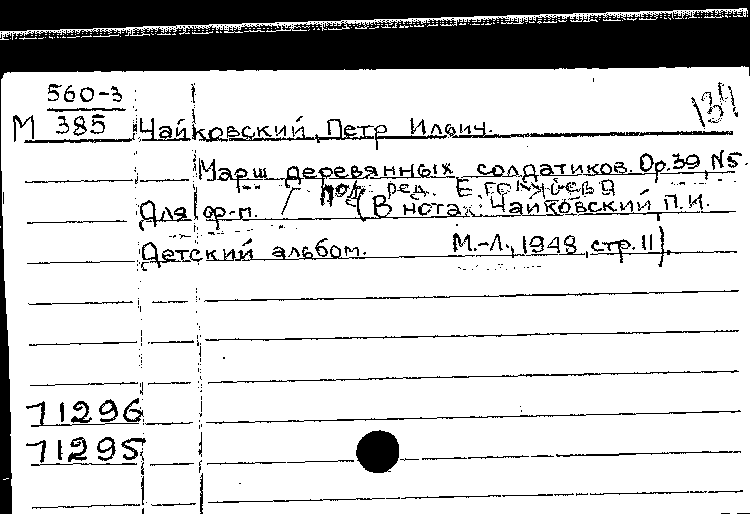 560-3
134
М 385 Чайковский, Петр Ильич.
Марш деревянных солдатиков. Op.39, N5.
под ред.
Для ф-п. (В нотах: Чайковский, П.И.
Детский альбом. М.-Л., 1948, стр. 11).
71296
71295